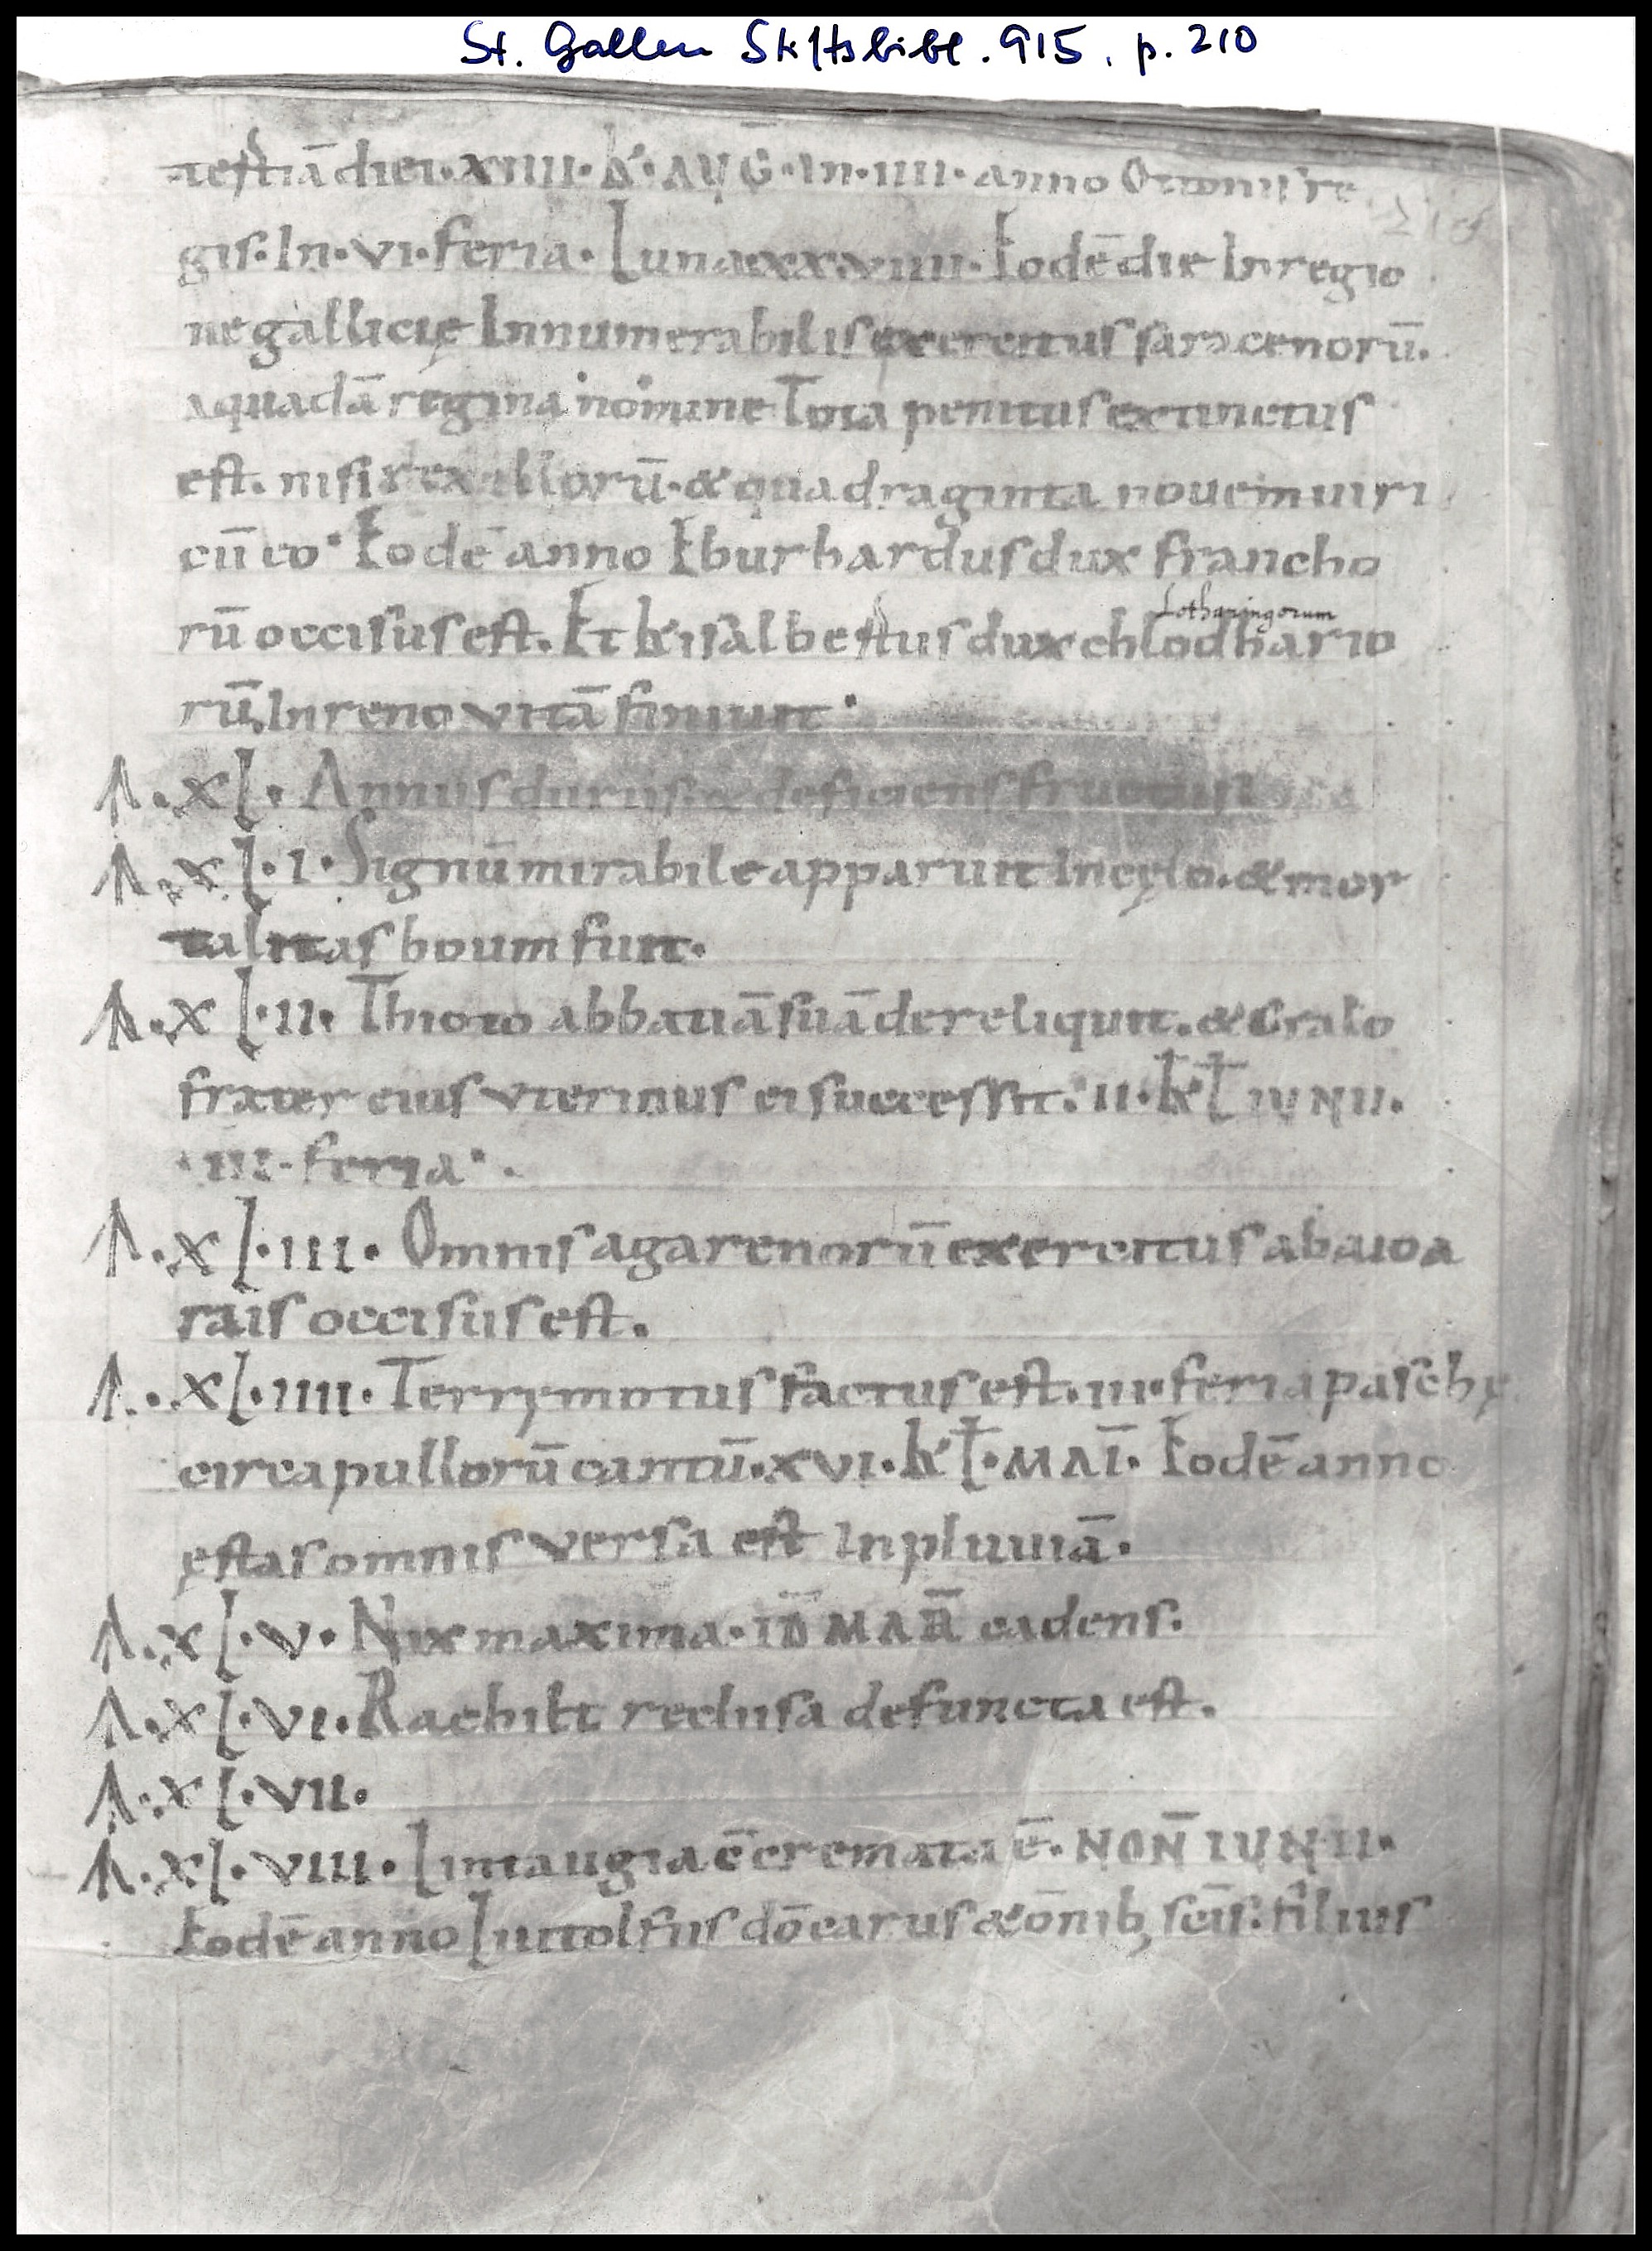 St. Gallen Stiftsbibl. 915, p. 210
tertiā diei. XIIII. K. AUḠ. In. IIII. anno Ottonis re
gis. In. VI. feria. Luna XX.VIIII. Eodē die In regio
ne gallicię Innumerabilis exercitus saracenorū.
a quadā regina nomine Toia penitus extinctus
est. nisi rex illorū. & quadraginta novem viri
cū eo. Eodē anno Eburhardus dux francho
rū occisus est. Et kisalbertus dux chlodhario
Lotharingorum
rū, In reno vitā finiuit.
XL. Annus durus. & deficiens fructus
XL. I. Signū mirabile apparuit In cęlo. & mor
talitas boum fuit.
XL. II. Thioto abbatiā suā dereliquit. & Cralo
frater eius uterinus ei successit. II. KL IUNII.
III. feria.
XL. III. Omnis agarenorū exercitus a baioa
rais occisus est.
XL. IIII. Terrȩmotus factus est. III. feria paschę
circa pullorū cantū. XVI. KL. MAI. Eodē anno
ęstas omnis versa est In pluuiā.
XL. V. Nix maxima. ID MAR cadens.
XL. VI. Rachilt reclusa defuncta est.
XL. VII.
XL. VIII. Lintaugia ē cremata ē. NON̄ IUNII.
Eodē anno Liutolfus dō carus & ōnib, scīs. filius